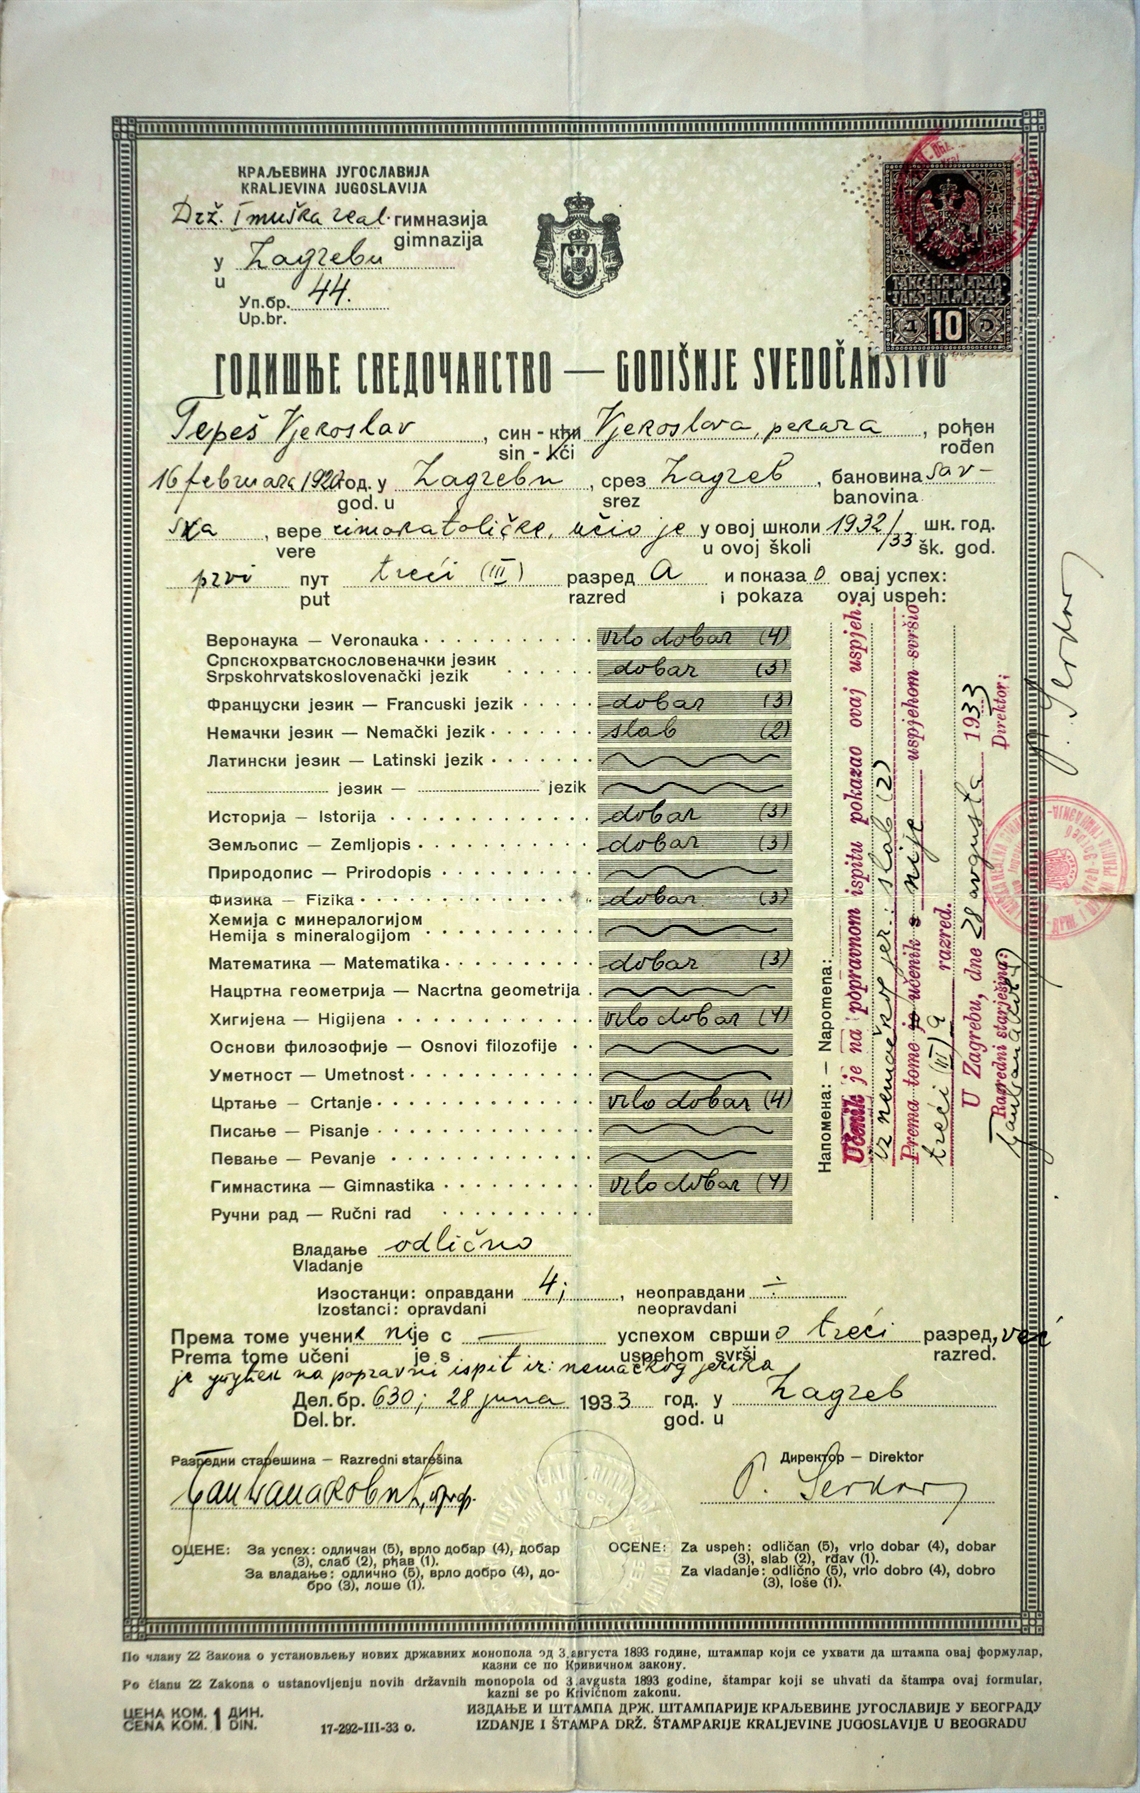 КРАЉЕВИНА ЈУГОСЛАВИЈА
KRALJEVINA JUGOSLAVIJA
Drž. I muška real. гимназија
gimnazija
у Zagrebu
u
Уп.бр. 44.
Up.br.
ТАКСЕНА МАРКА
TAKSENA MARKA
Д 10 D
ГОДИШЊЕ СВЕДОЧАНСТВО — GODIŠNJE SVEDOČANSTVO
Tepeš Vjekoslav, син - кћи Vjekoslava, pekara, рођен
sin - kći rođen
16 februara 1920 год. у Zagrebu, срез Zagreb, бановина sav-
god. u srez banovina
ska, вере rimokatoličke, učio je у овој школи 1932/33 шк. год.
vere u ovoj školi šk. god.
prvi пут treći (III) разред A и показаo овај успех:
put razred i pokaza ovaj uspeh:
Веронаука — Veronauka vrlo dobar (4)
Српскохрватскословеначки језик
Srpskohrvatskoslovenački jezik dobar (3)
Француски језик — Francuski jezik dobar (3)
Немачки језик — Nemački jezik slab (2)
Латински језик — Latinski jezik
језик — jezik
Историја — Istorija dobar (3)
Земљопис — Zemljopis dobar (3)
Природопис — Prirodopis
Физика — Fizika dobar (3)
Хемија с минералогијом
Hemija s mineralogijom
Математика — Matematika dobar (3)
Нацртна геометрија — Nacrtna geometrija
Хигијена — Higijena vrlo dobar (4)
Основи филозофије — Osnovi filozofije
Уметност — Umetnost
Цртање — Crtanje vrlo dobar (4)
Писање — Pisanje
Певање — Pevanje
Гимнастика — Gimnastika vrlo dobar (4)
Ручни рад — Ručni rad
Напомена: — Napomena:
Učenik je na popravnom ispitu pokazao ovaj uspjeh.
iz nemačkog jez.: slab (2)
Prema tome je učenik s nije uspjehom svršio
treći (III) a razred.
U Zagrebu, dne 28 avgusta 1933
Razredni starješina: Direktor:
P. Serdar
Владање odlično
Vladanje
Изостанци: оправдани 4; , неоправдани ÷
Izostanci: opravdani neopravdani
Према томе ученик nije с — успехом свршиo treći разред, već
Prema tome učeni je s uspehom svrši razred.
je upućen na popravni ispit iz nemačkog jezika
Дел. бр. 630; 28 juna 1933 год. у Zagreb
Del. br. god. u
Разредни старешина — Razredni starešina Директор — Direktor
P. Serdar
ОЦЕНЕ: За успех: одличан (5), врло добар (4), добар
(3), слаб (2), рђав (1).
За владање: одлично (5), врло добро (4), до-
бро (3), лоше (1).
OCENE: Za uspeh: odličan (5), vrlo dobar (4), dobar
(3), slab (2), rđav (1).
Za vladanje: odlično (5), vrlo dobro (4), dobro
(3), loše (1).
По члану 22 Закона о установљењу нових државних монопола од 3 августа 1893 године, штампар који се ухвати да штампа овај формулар,
казни се по Кривичном закону.
Po članu 22 Zakona o ustanovljenju novih državnih monopola od 3 avgusta 1893 godine, štampar koji se uhvati da štampa ovaj formular,
kazni se po Krivičnom zakonu.
ЦЕНА КОМ. 1 ДИН.
CENA KOM. DIN.
17-292-III-33 о.
ИЗДАЊЕ И ШТАМПА ДРЖ. ШТАМПАРИЈЕ КРАЉЕВИНЕ ЈУГОСЛАВИЈЕ У БЕОГРАДУ
IZDANJE I ŠTAMPA DRŽ. ŠTAMPARIJE KRALJEVINE JUGOSLAVIJE U BEOGRADU